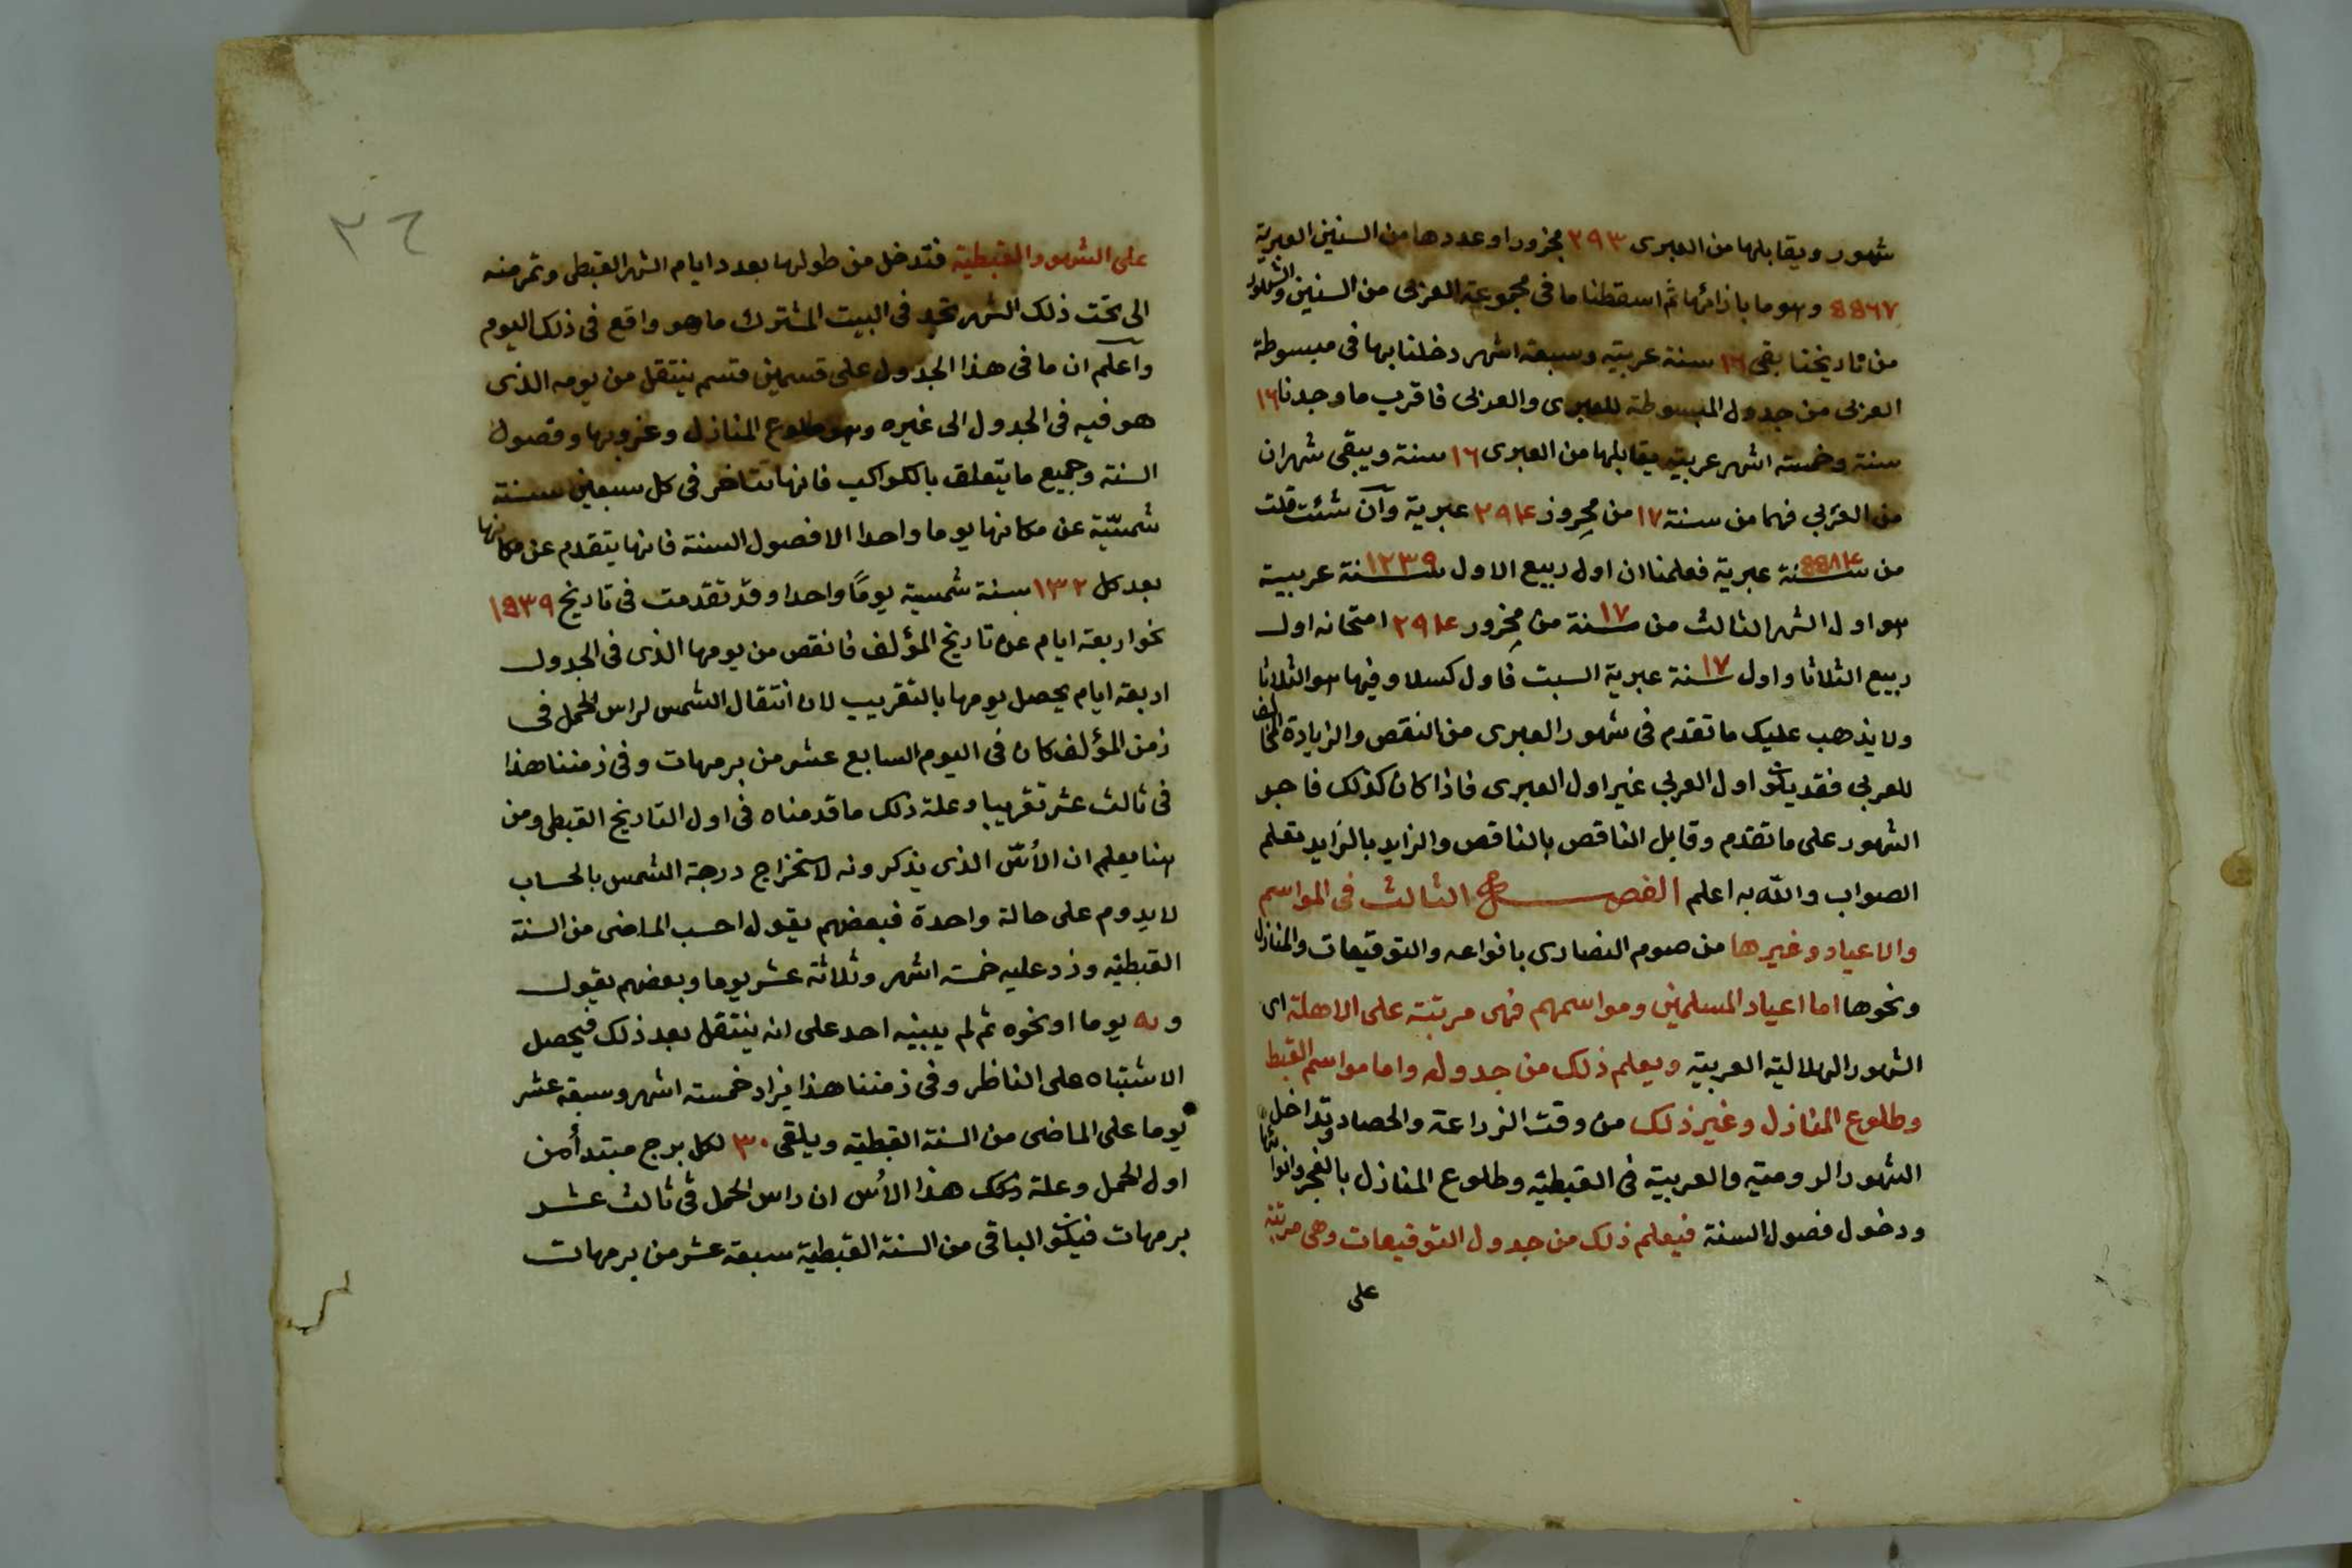 شهور ويقابلها من العبرى ٢٩٣ مجزورا وعددها من السنين العبرية
٥٥٦٧ وهو ما بازائها ثم اسقطنا ما فى مجموعة العربى من السنين والشهور
من تاريخنا بقى ١٦ سنة عربية وسبعة اشهر دخلنا بها فى مبسوطة
العربى من جدول المبسوطة للعبرى والعربى فاقرب ما وجدنا ١٦
سنة وخمسة اشهر عربية يقابلها من العبرى ١٦ سنة ويبقى شهران
من العربي فهما من سنة ١٧ من مجزور ٢٩٤ عبرية وان شئت قلت
من سنة ٥٥٨٤ عبرية فعلمنا ان اول ربيع الاول سنة ١٢٣٩ عربية
هو اول الشهر الثالث من سنة ١٧ من مجزور ٢٩٤ امتحانه اول
ربيع الثلاثا واول سنة ١٧ عبرية السبت فاول كسلا وفيها هو الثلاثا
ولا يذهب عليك ما تقدم فى شهور العبرى من النقص والزيادة المخالف
للعربي فقد يكون اول العربي غير اول العبرى فاذا كان كذلك فاجر
الشهور على ما تقدم وقابل الناقص بالناقص والزايد بالزايد تعلم
الصواب والله به اعلم الفصل الثالث فى المواسم
والاعياد وغيرها من صوم النصارى بانواعه والتوقيعات والمنازل
ونحوها اما اعياد المسلمين ومواسمهم فهى مرتبة على الاهلة اى
الشهور الهلالية العربية ويعلم ذلك من جدوله واما مواسم القبط
وطلوع المنازل وغير ذلك من وقت الزراعة والحصاد وتداخل
الشهور الرومية والعربية فى القبطية وطلوع المنازل بالفجر وانوائها
ودخول فصول السنة فيعلم ذلك من جدول التوقيعات وهى مرتبة
على
٣٦
على الشهور القبطية فتدخل من طولها بعدد ايام الشهر القبطى وتمر منه
الى تحت ذلك الشهر تجد فى البيت المشترك ما هو واقع فى ذلك اليوم
واعلم ان ما فى هذا الجدول على قسمين قسم ينتقل من يومه الذى
هو فيه فى الجدول الى غيره وهو طلوع المنازل وغروبها وفصول
السنة وجميع ما يتعلق بالكواكب فانها تتاخر فى كل سبعين سنة
شمسيّة عن مكانها يوما واحدا الا فصول السنة فانها يتقدم عن مكانها
بعد كل ١٣٢ سنة شمسية يومًا واحدا وقد تقدمت فى تاريخ ١٥٣٩
نحو اربعة ايام عن تاريخ المؤلف فانقص من يومها الذى فى الجدول
اربعة ايام يحصل يومها بالتقريب لان انتقال الشمس لراس الحمل فى
زمن المؤلف كان فى اليوم السابع عشر من برمهات وفى زمننا هذا
فى ثالث عشر تقريبا وعلة ذلك ما قدمناه فى اول التاريخ القبطى ومن
هنا يعلم ان الأسّ الذى يذكرونه لاستخراج درجة الشمس بالحساب
لا يدوم على حالة واحدة فبعضهم يقول احسب الماضى من السنة
القبطية وزد عليه خمسة اشهر وثلاثة عشر يوما وبعضهم يقول
و يه يوما او نحوه ثم لم يبينه احد على انه ينتقل بعد ذلك فيحصل
الاشتباه على الناظر وفى زمننا هذا يزاد خمسة اشهر وسبعة عشر
يوما على الماضى من السنة القبطية ويلقى ٣٠ لكل برج مبتدأ من
اول الحمل وعلة ذلك هذا الأس ان راس الحمل فى ثالث عشر
برمهات فيكون الباقى من السنة القبطية سبعة عشر من برمهات